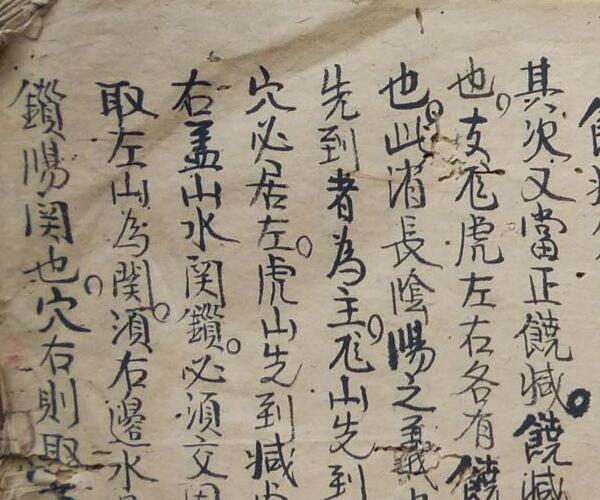 其次又當正饒減。饒減
也。支尨虎左右各有饒
也。此消長陰陽之義
先到者為主。尨山先到
穴必居左。虎山先到減
右盖山水関鎖。必須交
取左山為関。須右邊水
鎖陽関也。穴右則取